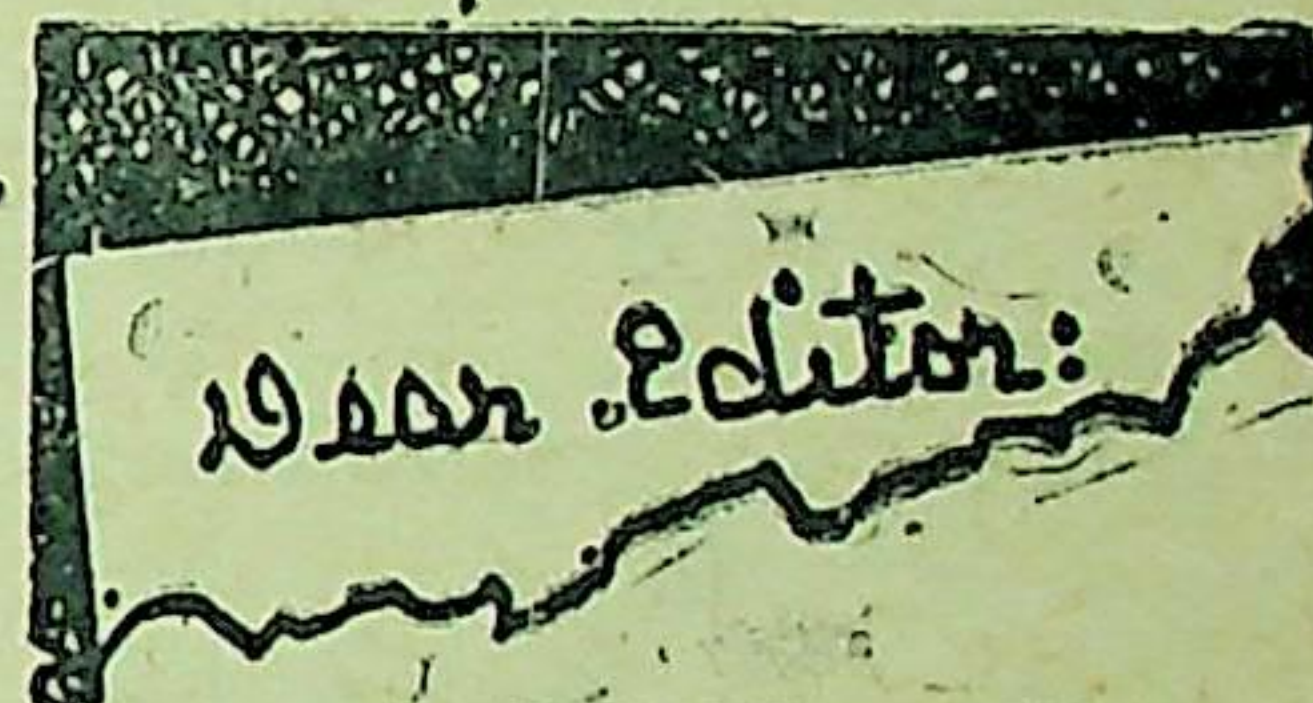 Dear Editor: